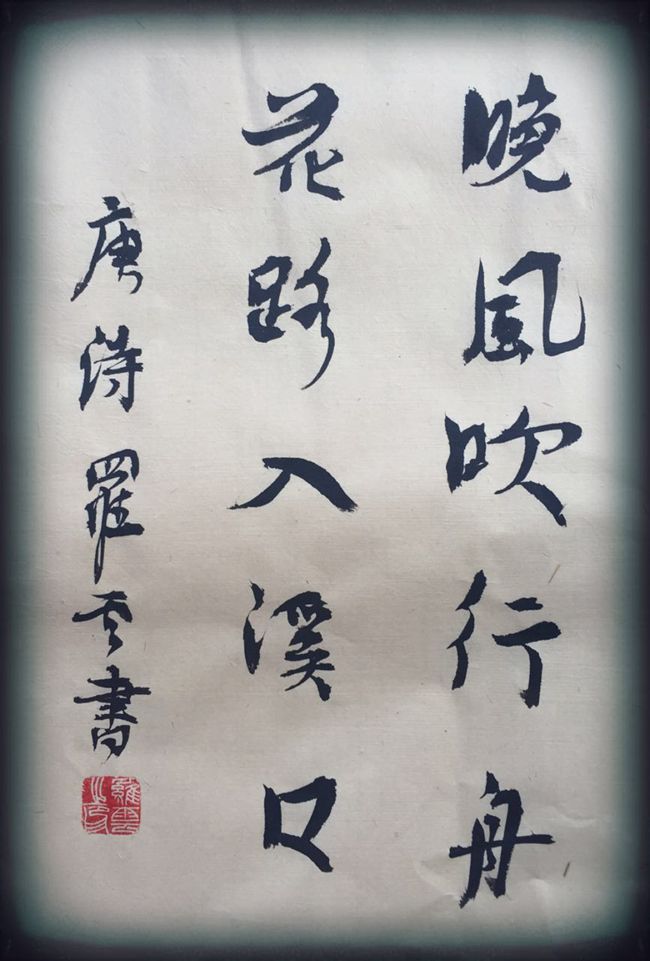 晚风吹行舟
花路入溪口
唐诗羅云書